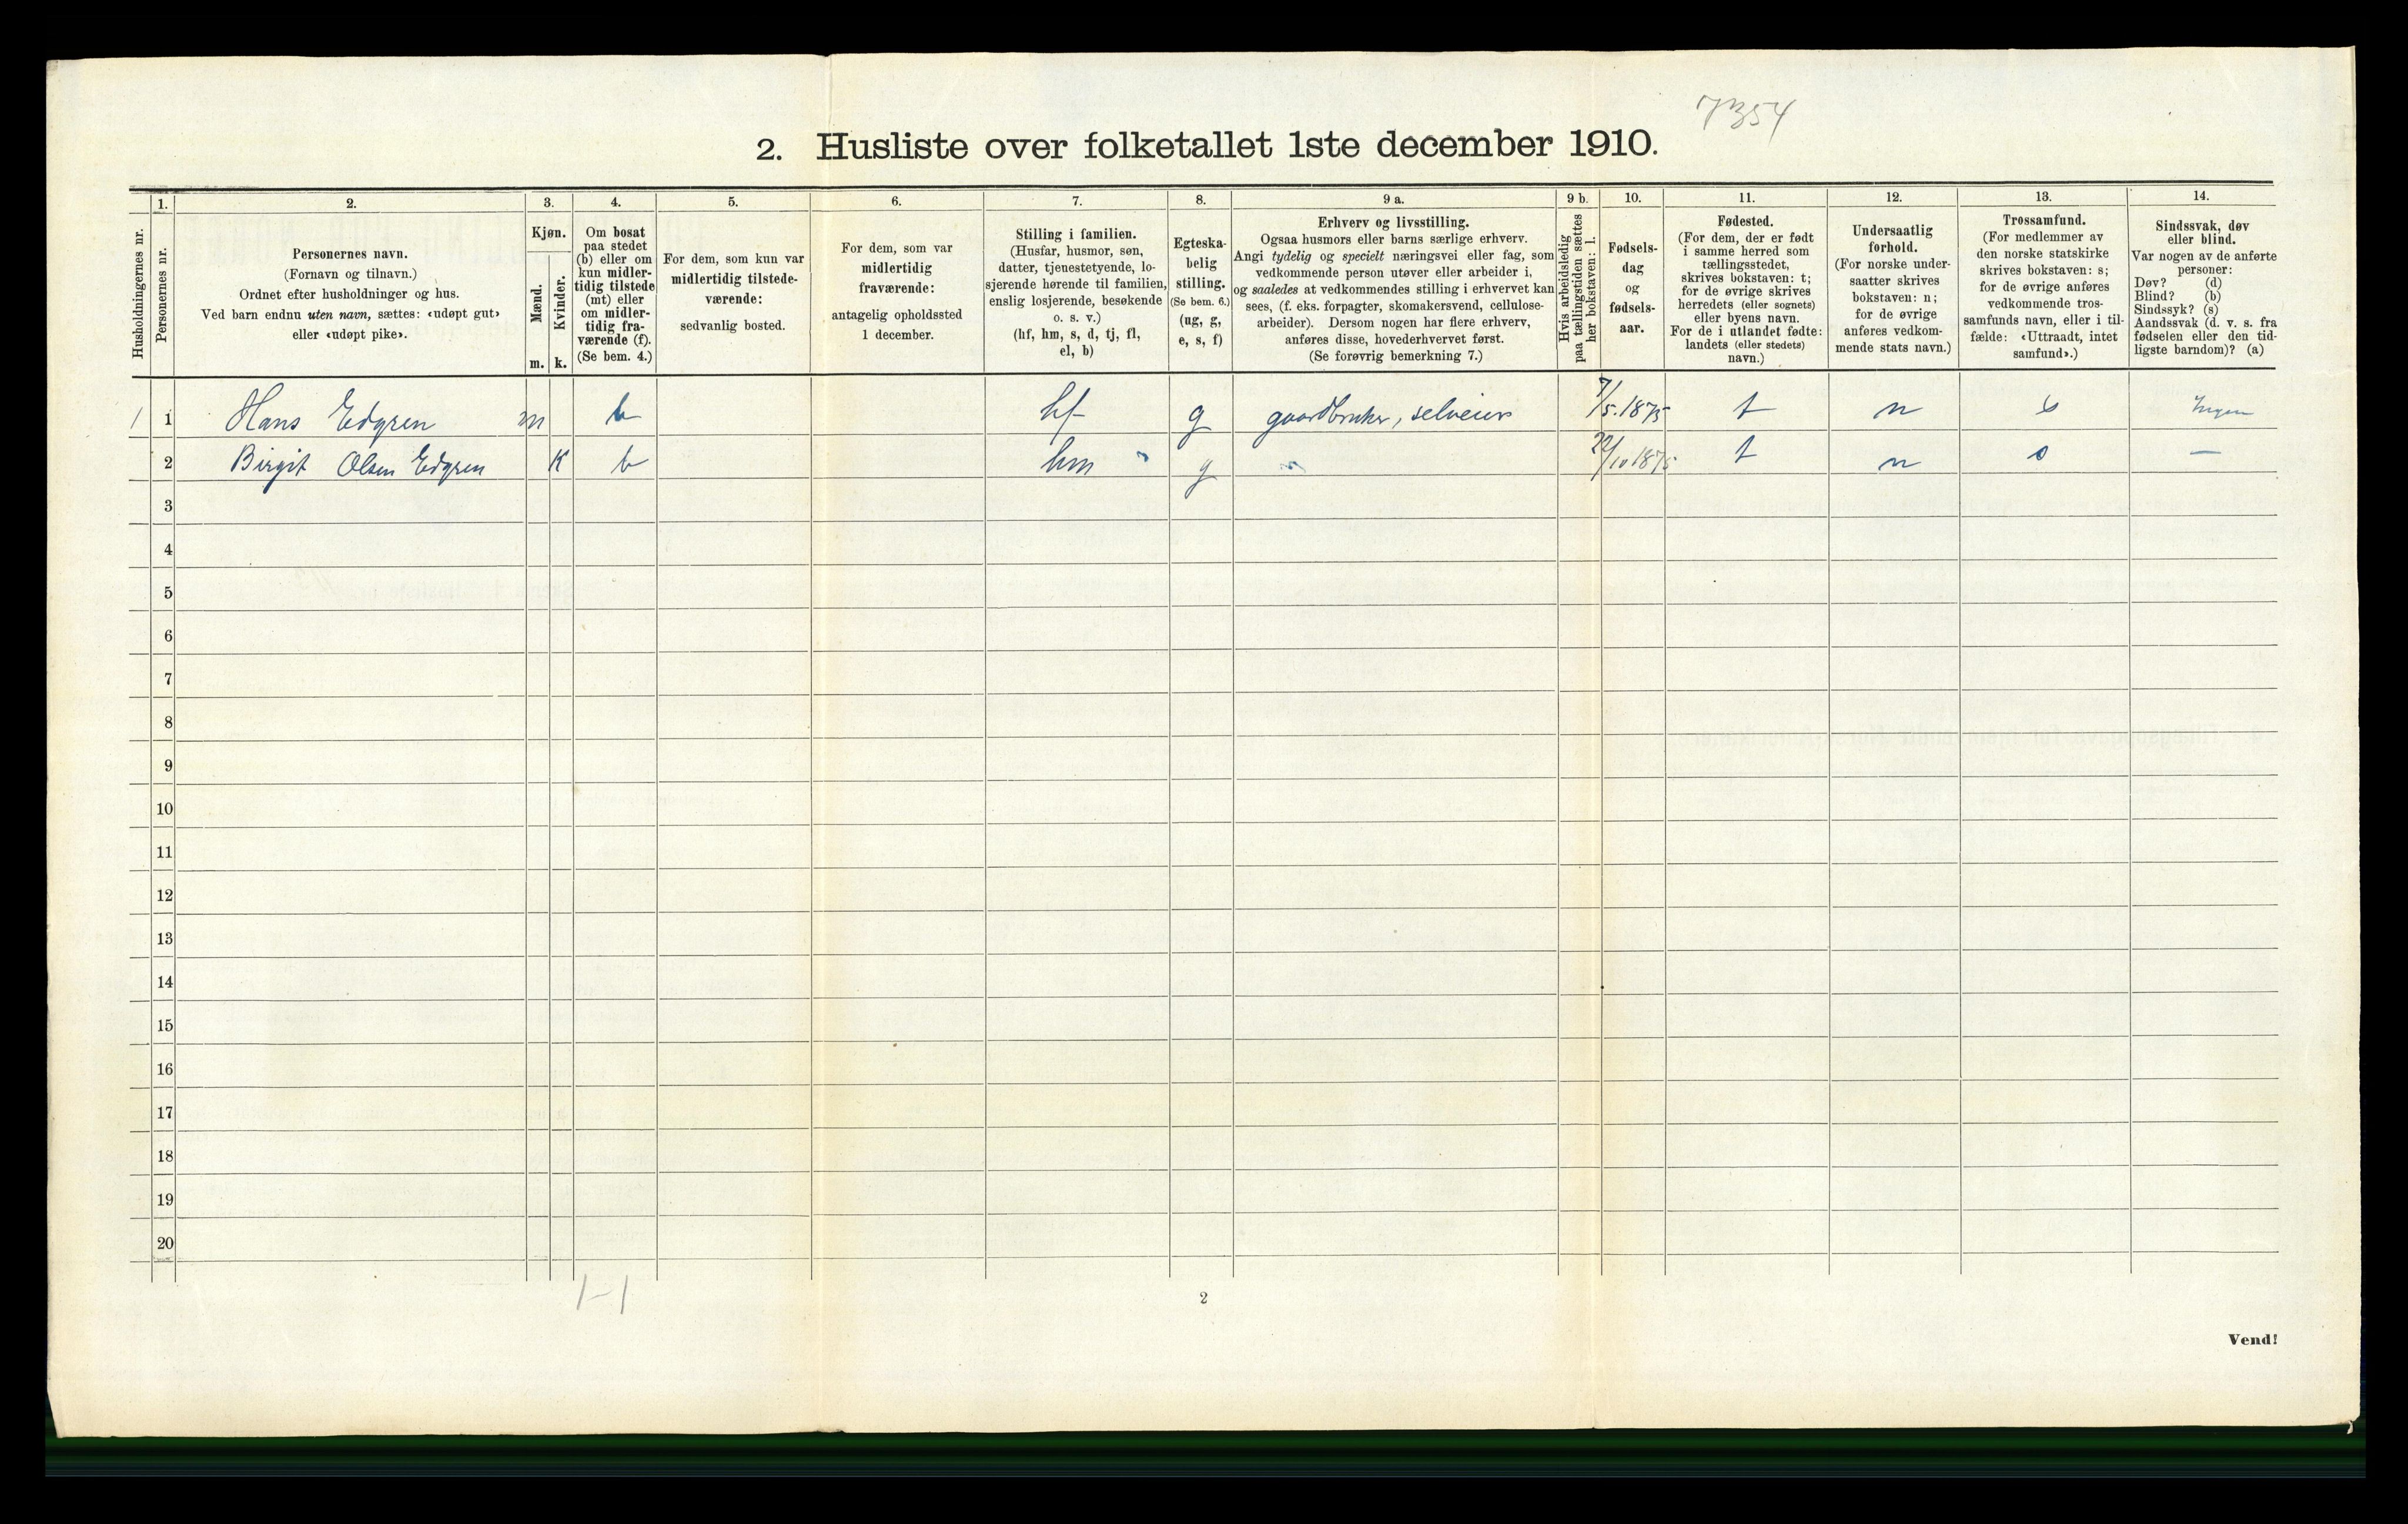 7354
2. Husliste over folketallet 1ste december 1910.
Husholdningernes nr.
1.
Personernes nr.
2.
Personernes navn.
(Fornavn og tilnavn.)
Ordnet efter husholdninger og hus.
Ved barn endnu uten navn, sættes: «udøpt gut»
eller «udøpt pike».
3.
Kjøn.
Mænd.
m.
Kvinder.
k.
4.
Om bosat
paa stedet
(b) eller om
kun midler-
tidig tilstede
(mt) eller
om midler-
tidig fra-
værende (f).
(Se bem. 4.)
5.
For dem, som kun var
midlertidig tilstede-
værende:
sedvanlig bosted.
6.
For dem, som var
midlertidig
fraværende:
antagelig opholdssted
1 december.
7.
Stilling i familien.
(Husfar, husmor, søn,
datter, tjenestetyende, lo-
sjerende hørende til familien,
enslig losjerende, besøkende
o. s. v.)
(hf, hm, s, d, tj, fl,
el, b)
8.
Egteska-
belig
stilling.
(Se bem. 6.)
(ug, g,
e, s, f)
9 a.
Erhverv og livsstilling.
Ogsaa husmors eller barns særlige erhverv.
Angi tydelig og specielt næringsvei eller fag, som
vedkommende person utøver eller arbeider i,
og saaledes at vedkommendes stilling i erhvervet kan
sees, (f. eks. forpagter, skomakersvend, cellulose-
arbeider). Dersom nogen har flere erhverv,
anføres disse, hovederhvervet først.
(Se forøvrig bemerkning 7.)
9 b.
Hvis arbeidsledig
paa tællingstiden sættes
her bokstaven: l.
10.
Fødsels-
dag
og
fødsels-
aar.
11.
Fødested.
(For dem, der er født
i samme herred som
tællingsstedet,
skrives bokstaven: t;
for de øvrige skrives
herredets (eller sognets)
eller byens navn.
For de i utlandet fødte:
landets (eller stedets)
navn.)
12.
Undersaatlig
forhold.
(For norske under-
saatter skrives
bokstaven: n;
for de øvrige
anføres vedkom-
mende stats navn.)
13.
Trossamfund.
(For medlemmer av
den norske statskirke
skrives bokstaven: s;
for de øvrige anføres
vedkommende tros-
samfunds navn, eller i til-
fælde: «Uttraadt, intet
samfund».)
14.
Sindssvak, døv
eller blind.
Var nogen av de anførte
personer:
Døv? (d)
Blind? (b)
Sindssyk? (s)
Aandssvak (d. v. s. fra
fødselen eller den tid-
ligste barndom)? (a)
1 1 Hans Edgren m b hf g gaardbruker, selveier 7/5.1875 t n s Ingen
2 Birgit Olsen Edgren K b hm g 22/10 1875 t n s —
3
4
5
6
7
8
9
10
11
12
13
14
15
16
17
18
19
20
1-1
2
Vend!